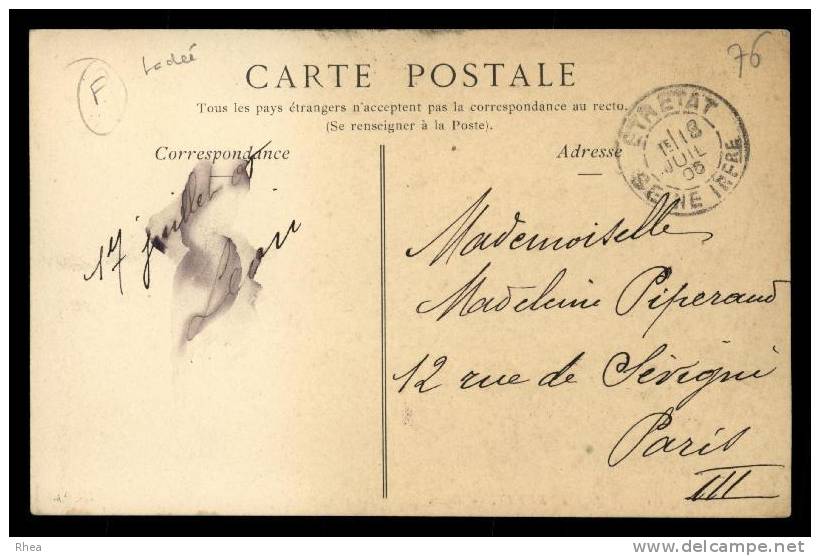 F
76
CARTE POSTALE
Tous les pays étrangers n'acceptent pas la correspondance au recto.
(Se renseigner à la Poste).
Correspondance
Adresse
ETRETAT
18
JUIL
05
SEINE INFRE
17 juillet
Mademoiselle
Madeleine Piperaud
12 rue de Sévigné
Paris
III
Rhea
www.delcampe.net